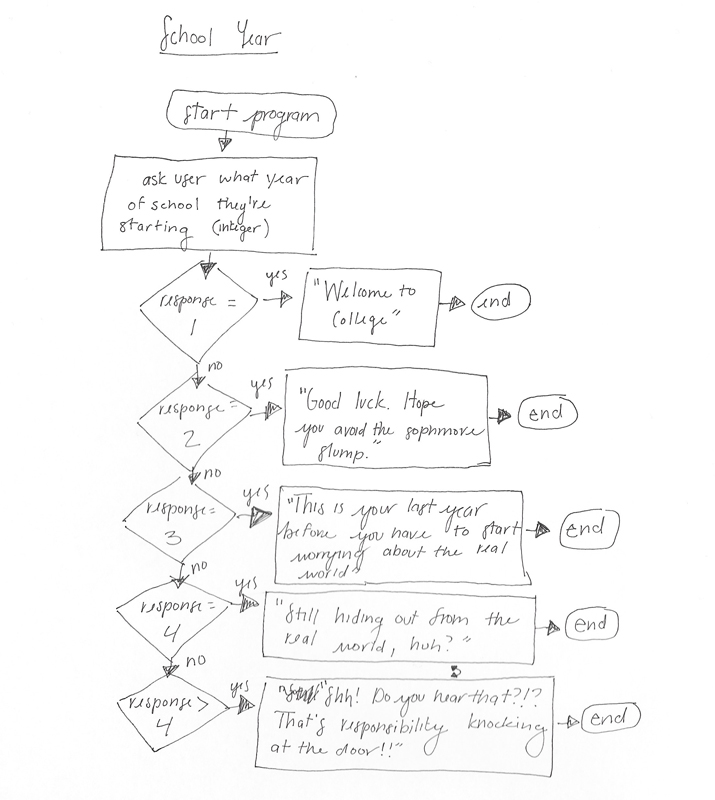 School Year
start program
ask user what year
of school they're
starting (integer)
response =
1
yes
"Welcome to
College"
end
no
response =
2
yes
"Good luck. Hope
you avoid the sophmore
slump."
end
no
response =
3
yes
"This is your last year
before you have to start
worrying about the real
world"
end
no
response =
4
yes
"Still hiding out from the
real world, huh?"
end
no
response >
4
yes
"Shh! Do you hear that?!?
That's responsibility knocking
at the door!!"
end